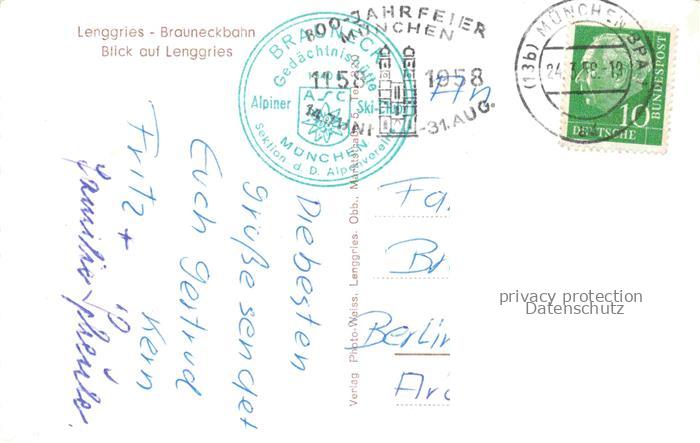 Lenggries - Brauneckbahn
Blick auf Lenggries
BRAUNECK
Gedächtnishütte
1540
ASC
Alpiner Ski-Club
MÜNCHEN
Sektion d. D. Alpenverein
800-JAHRFEIER
MÜNCHEN
1158 1958
-31. AUG.
(13b) MÜNCHEN BPA
24.7.58.-19
10
DEUTSCHE
BUNDESPOST
Die besten
Grüße sendet
Euch Gertrud
Fritz + Kern
Familie
Verlag Photo-Weiss, Lenggries, Obb., Marktstraße 5, Telefon
An
Fa
Br
Berlin
privacy protection
Datenschutz